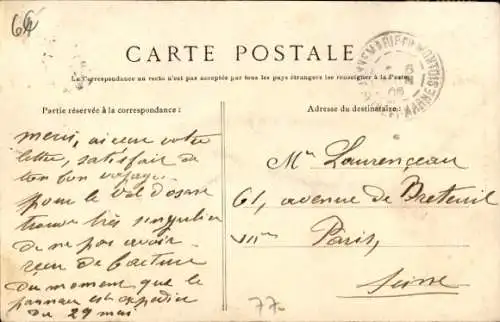 64
CARTE POSTALE
La Correspondance au recto n'est pas acceptée par tous les pays étrangers (se renseigner à la Poste)
Partie réservée à la correspondance :
Adresse du destinataire :
DONNEMARIE-EN-MONTOIS
SEINE-ET-MARNE
merci, ai eu votre
lettre, satisfait de
ton bon voyage
pour le Val d'osne
trouve très singulier
de ne pas avoir
reçu de facture
du moment que le
panneau est expédié
du 29 mai
Mr Laurenceau
61, avenue de Breteuil
Paris,
Seine
77